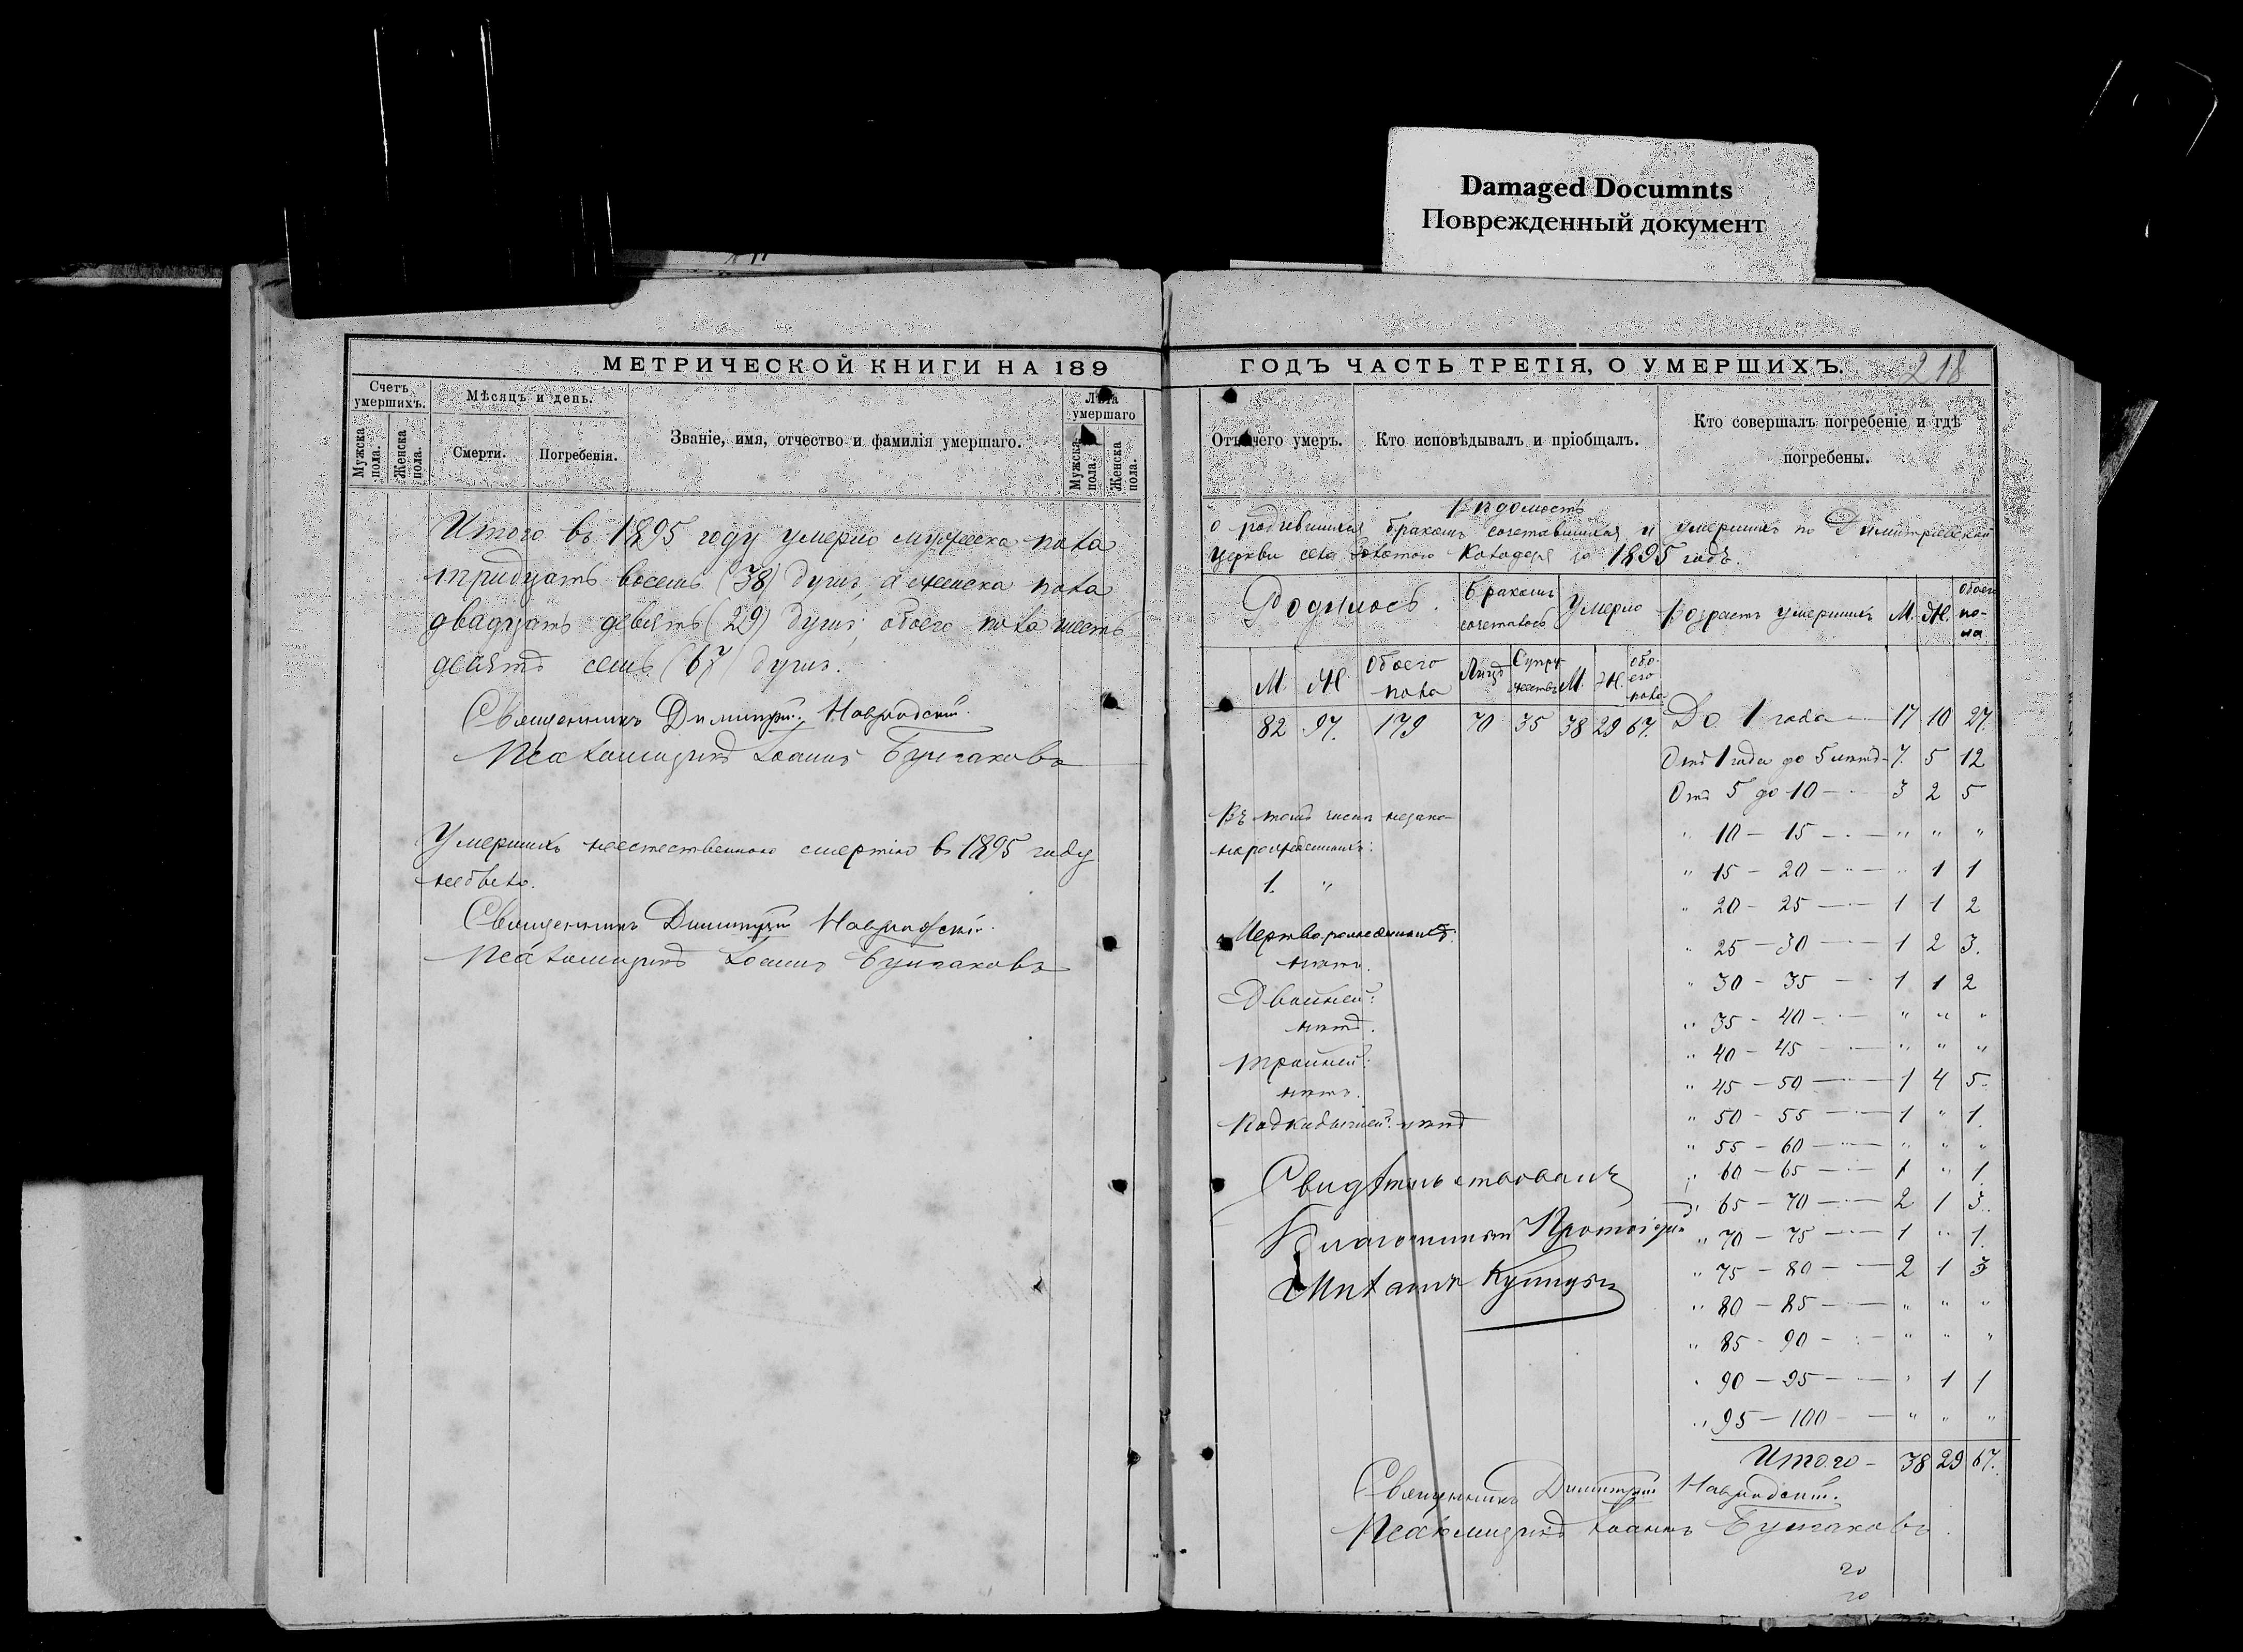 Damaged Documnts
Поврежденный документ
МЕТРИЧЕСКОЙ КНИГИ НА 189
Счетъ умершихъ.
Мужска пола.
Женска пола.
Мѣсяцъ и день.
Смерти.
Погребенія.
Званіе, имя, отчество и фамилія умершаго.
Лѣта умершаго
Мужска пола.
Женска пола.
Итого въ 1895 году умерло мужеска пола
тридцать восемь (38) душъ, а женска пола
двадцать девять (29) душъ; обоего пола шесть-
десятъ семь (67) душъ.
Священникъ Димитрій
Псаломщикъ Іоаннъ Булгаковъ
Умершихъ неестественною смертію въ 1895 году
не было.
Священникъ Димитрій
Псаломщикъ Іоаннъ Булгаковъ
ГОДЪ ЧАСТЬ ТРЕТІЯ, О УМЕРШИХЪ.
218
Отъ чего умеръ.
Кто исповѣдывалъ и пріобщалъ.
Кто совершалъ погребеніе и гдѣ
погребены.
Вѣдомость
о родившихся бракомъ сочетавшихся и умершихъ по Димитріевской
Церкви села Золотого Колодезя за 1895 годъ.
Родилось. Бракомъ сочеталось Умерло Возрастъ умершихъ М. Ж. Обоего пола
М. Ж. Обоего пола Лицъ Супружествъ М. Ж. обоего пола
82 97. 179 70 35 38 29 67.
До 1 года — 17 10 27.
Отъ 1 года до 5 лѣтъ - 7. 5 12
Отъ 5 до 10 — 3 2 5
" 10 — 15 — " " "
" 15 — 20 — " 1 1
" 20 — 25 — 1 1 2
" 25 — 30 — 1 2 3.
" 30 — 35 — 1 1 2
" 35 — 40 — " " "
" 40 — 45 — " " "
" 45 — 50 — 1 4 5
" 50 — 55 — 1 " 1
" 55 — 60 — " " "
" 60 — 65 — 1 " 1
" 65 — 70 — 2 1 3
" 70 — 75 — 1 " 1.
" 75 — 80 — 2 1 3
" 80 — 85 — " " "
" 85 — 90 — " " "
" 90 — 95 — " 1 1
" 95 — 100 — " " "
Итого — 38 29 67.
Въ томъ числѣ незако-
норожденныхъ:
1. "
Мертворожденныхъ:
нѣтъ.
Двойней:
нѣтъ.
Тройней:
нѣтъ.
Подкидышей: нѣтъ
Свидѣтельствовалъ
Благочинный Протоіерей
Священникъ Димитрій
Псаломщикъ Іоаннъ Булгаковъ.
20
20